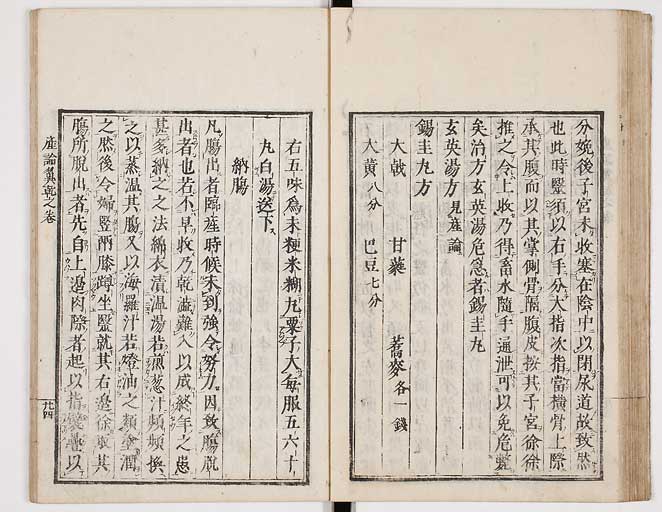 分娩後子宮未收塞在陰中以閉尿道故致然
也此時毉須以右手分大指次指當橫骨上際
承其腹而以其掌側骨隔腹皮按其子宮徐徐
推之令上收乃得畜水隨手通泄可以免危斃
矣治方玄英湯危急者錫圭丸
玄英湯方見産論
錫圭丸方
大戟 甘䕫 蕎麥各一錢
大黄八分 巴豆七分
右五味爲末粳米糊丸粟子大每服五六十
丸白湯送下ス
納膓
凡膓出者臨産時候未到強令努力因致膓脫
出者也若不早收乃乾澁難入以成終年之患
甚多納之之法綿衣漬温湯若煎葱汁頻頻換
之以蒸温其膓又以海羅汁若燈油之類塗潤
之然後令婦竪兩膝蹲坐毉就其右邊徐取其
膓所脫出者先自上邊肉際者起以指
以
産論翼乾之卷
廿四